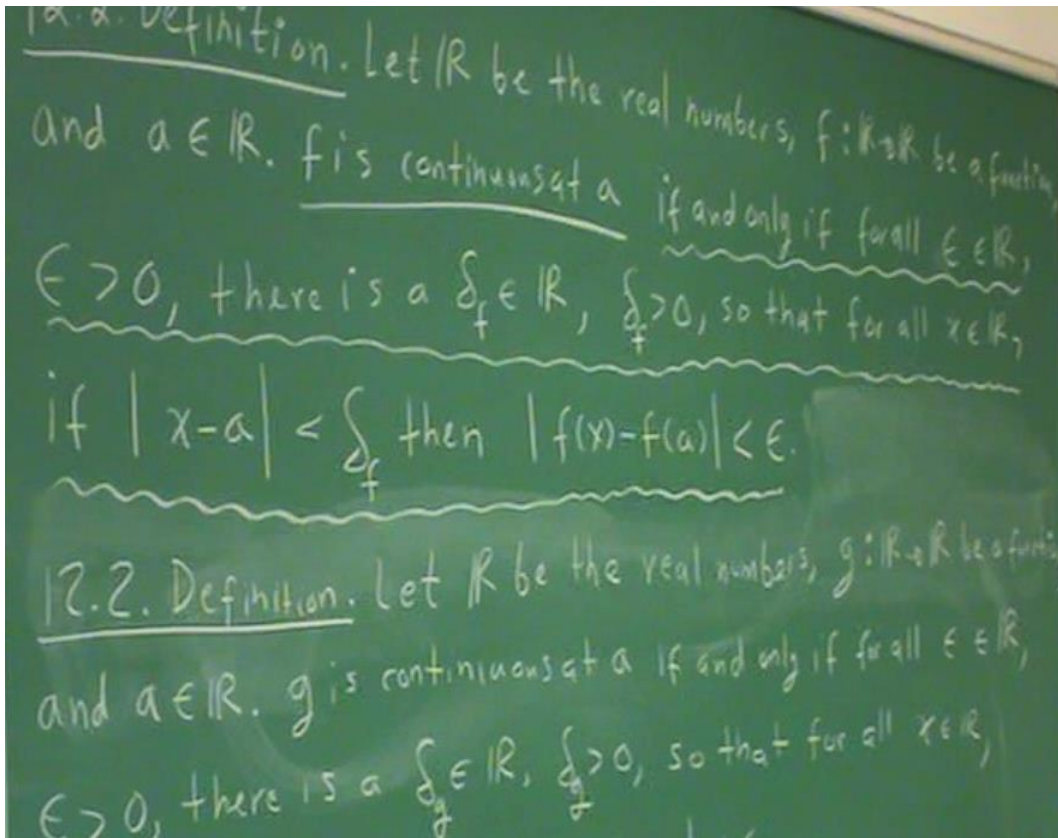 12.2. Definition. Let ℝ be the real numbers, f:ℝ→ℝ be a function,
and a ∈ ℝ. f is continuous at a if and only if for all ϵ ∈ ℝ,
ϵ > 0, there is a δ_f ∈ ℝ, δ_f > 0, so that for all x ∈ ℝ,
if |x-a| < δ_f then |f(x)-f(a)| < ϵ.
12.2. Definition. Let ℝ be the real numbers, g:ℝ→ℝ be a functi
and a ∈ ℝ. g is continuous at a if and only if for all ϵ ∈ ℝ,
ϵ > 0, there is a δ_g ∈ ℝ, δ_g > 0, so that for all x ∈ ℝ,